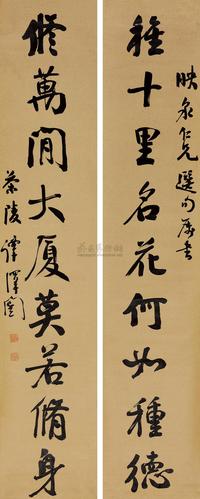 映泉仁兄選句属書
種十里名花何如種德
修萬間大厦莫若脩身
茶陵譚澤闓